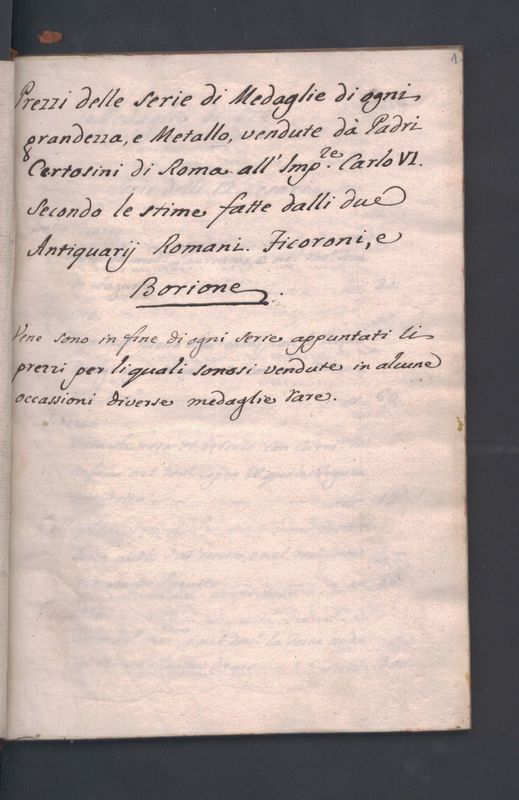 1
Prezzi delle serie di Medaglie di ogni
grandezza, e Metallo, vendute dà Padri
Certosini di Roma all' Imp.re Carlo VI.
Secondo le stime fatte dalli due
Antiquarij Romani. Ficoroni, e
Borione.
Vene sono in fine di ogni serie appuntati li
prezzi per li quali sonosi vendute in alcune
occassioni diverse medaglie rare.